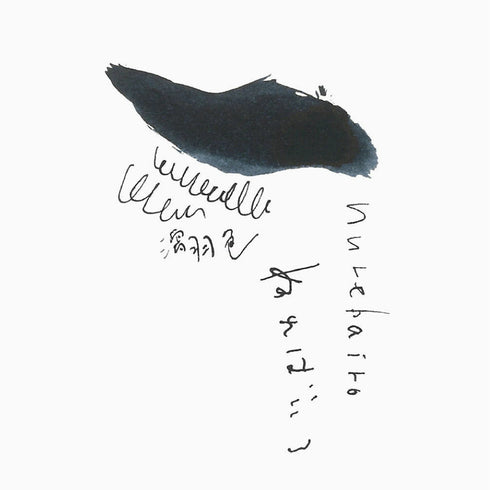 濡羽色
ぬればいろ
nurebairo